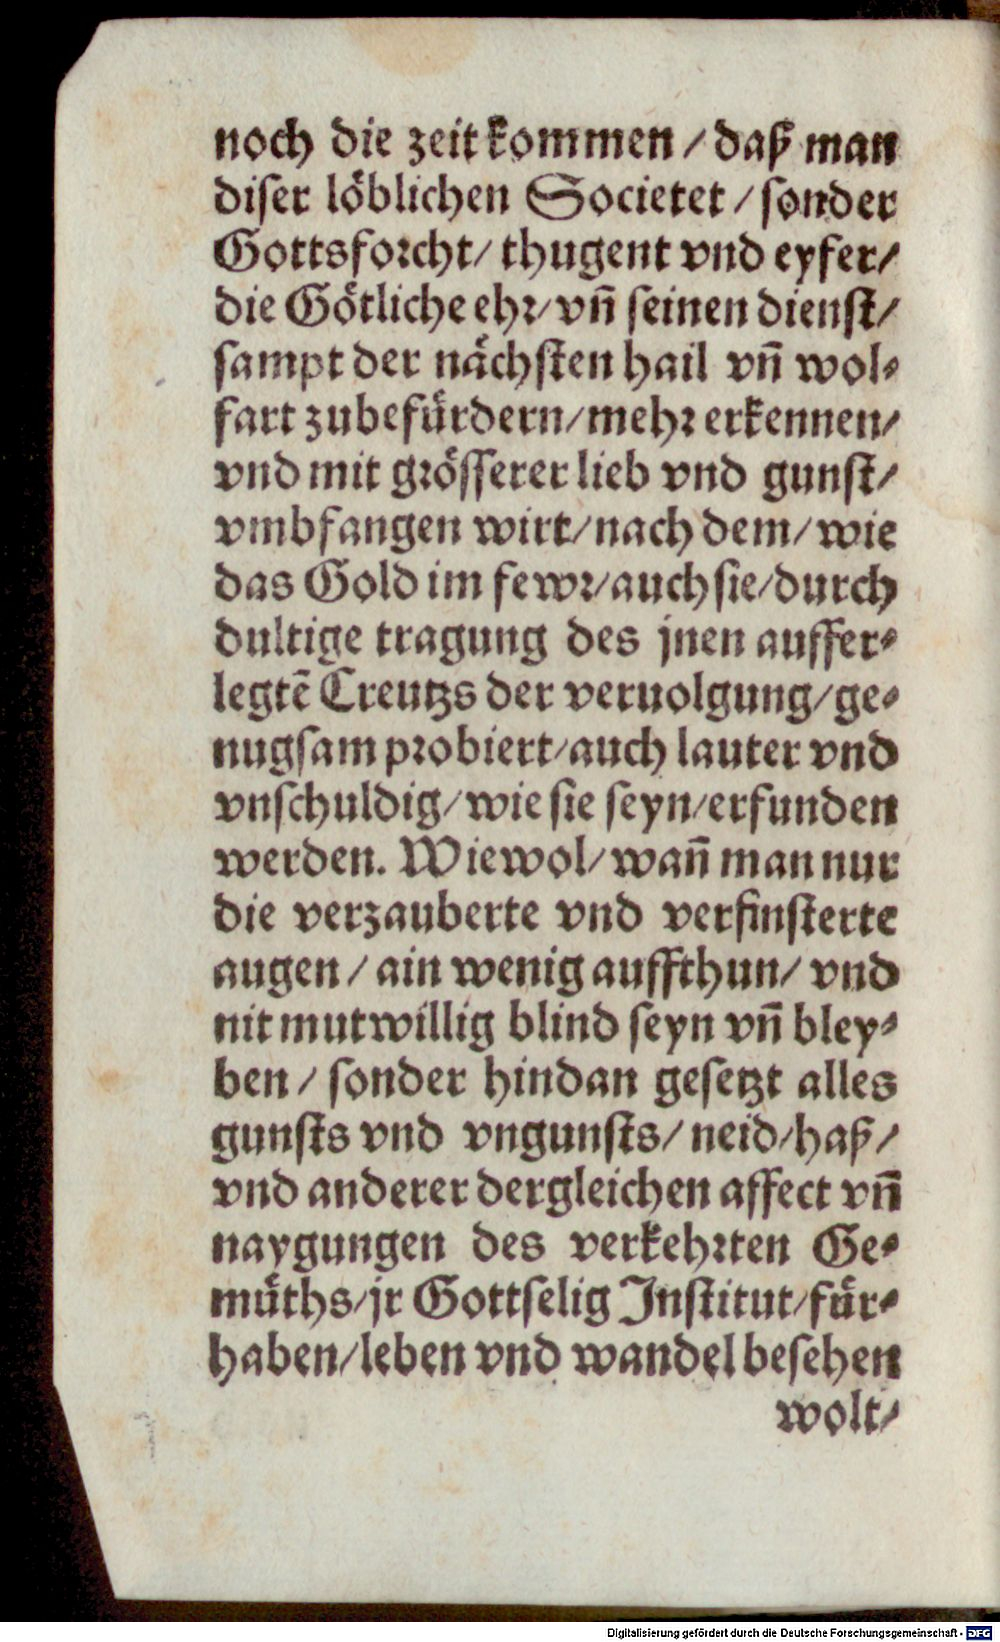 noch die zeit kommen / daß man
diser löblichen Societet / sonder
Gottsforcht / thugent vnd eyfer /
die Götliche ehr / vn̄ seinen dienst /
sampt der nächsten hail vn̄ wol⸗
fart zubefürdern / mehr erkennen /
vnd mit grösserer lieb vnd gunst /
vmbfangen wirt / nach dem / wie
das Gold im fewr / auch sie / durch
dultige tragung des jnen auffer⸗
legtē Creutzs der veruolgung / ge⸗
nugsam probiert / auch lauter vnd
vnschuldig / wie sie seyn / erfunden
werden. Wiewol / wan̄ man nur
die verzauberte vnd verfinsterte
augen / ain wenig auffthun / vnd
nit mutwillig blind seyn vn̄ bley⸗
ben / sonder hindan gesetzt alles
gunsts vnd vngunsts / neid / haß /
vnd anderer dergleichen affect vn̄
naygungen des verkehrten Ge⸗
müths / jr Gottselig Institut / für⸗
haben / leben vnd wandel besehen
wolt /
Digitalisierung gefördert durch die Deutsche Forschungsgemeinschaft - DFG